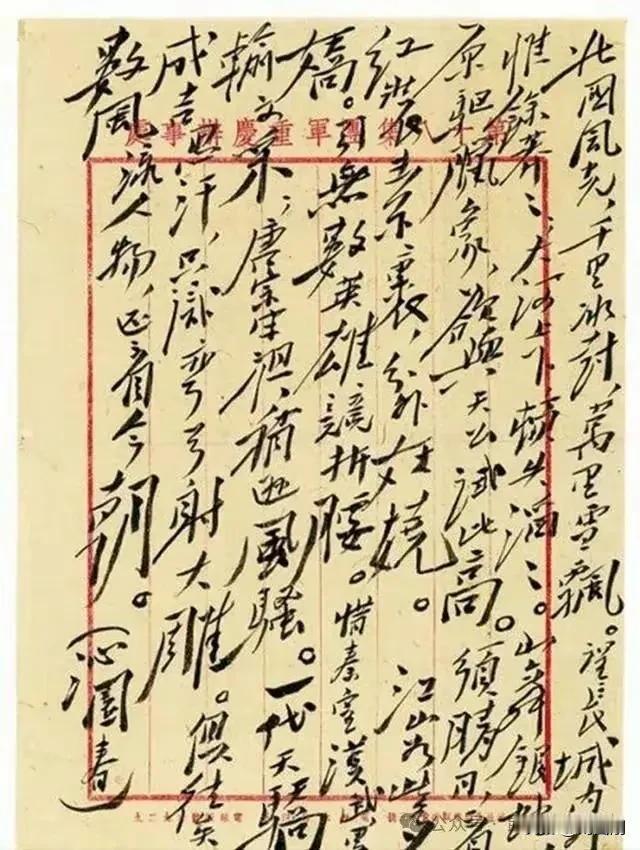 第十八集團軍重慶辦事處
北國風光，千里冰封，萬里雪飄。望長城內外
惟餘莽々，大河上下，頓失滔々。山舞銀
原驅臘象，欲與天公試比高。須晴日，看
紅裝素裹，分外妖嬈。 江山如此多
嬌。引無數英雄競折腰。惜秦皇漢武，畧
輸文采，唐宗宋祖，稍遜風騷。一代天驕
成吉思汗，只識彎弓射大雕。俱往矣
數風流人物，還看今朝。（沁園春）
公众号